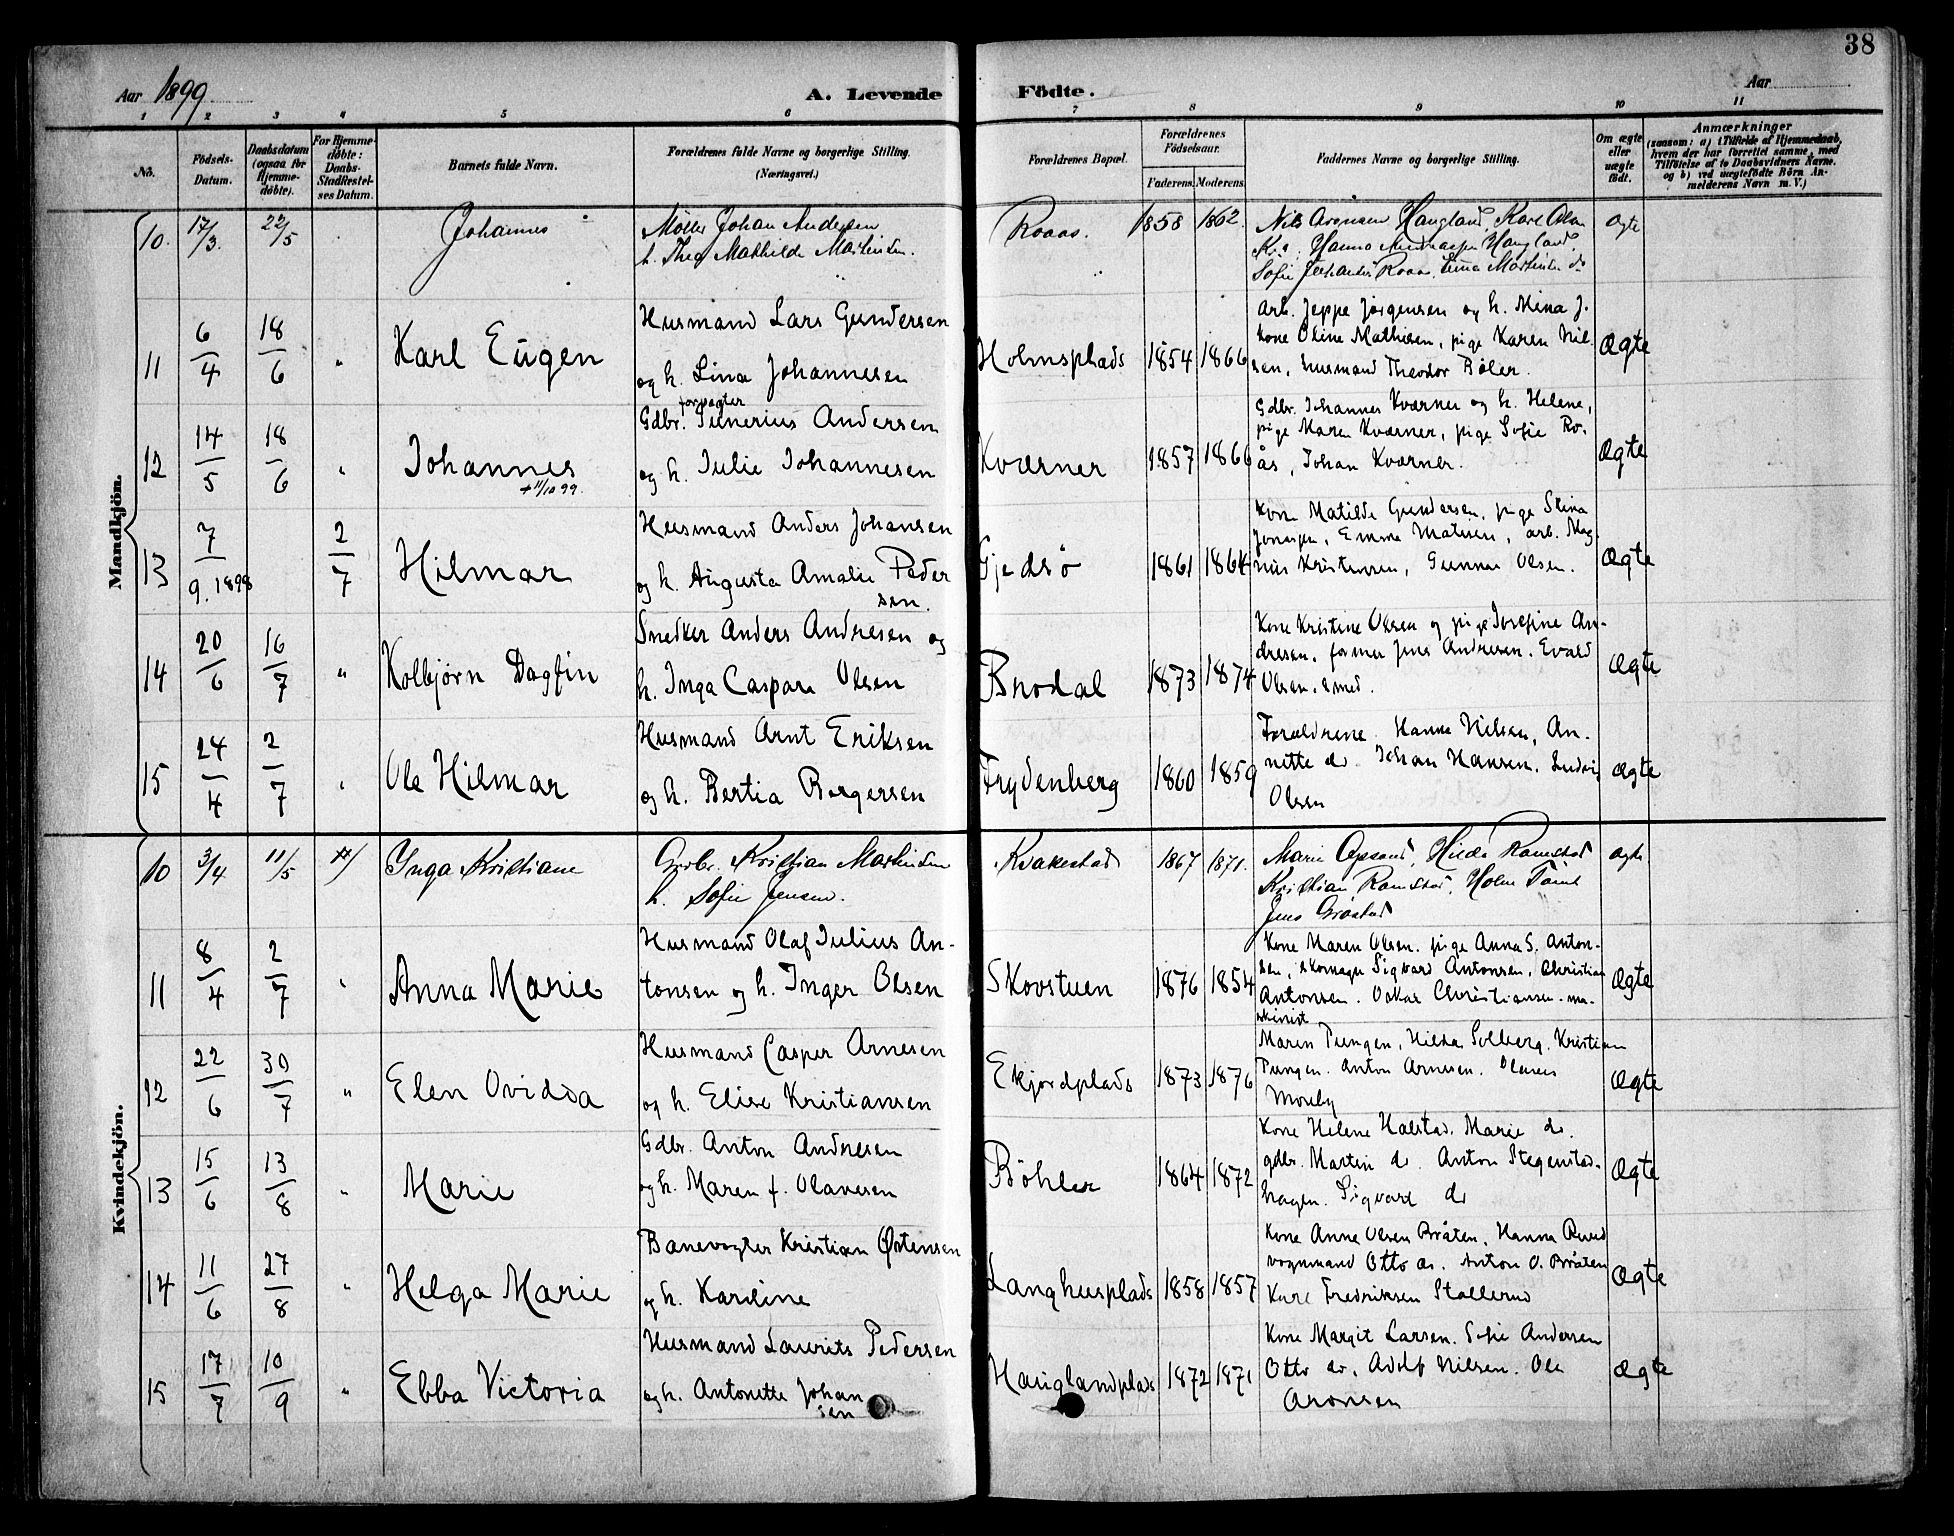 38
Aar 1899
A. Levende
Födte.
Aar
1 2 3 4 5 6 7 8 9 10 11
No.
Födsels-
Datum.
Daabsdatum
(ogsaa för
Hjemme-
döbte).
For Hjemme-
döbte:
Daabs-
Stadfæstel-
ses Datum.
Barnets fulde Navn.
Forældrenes fulde Navne og borgerlige Stilling.
(Næringsvei.)
Forældrenes Bopæl.
Forældrenes
Födselsaar.
Faderens. Moderens.
Faddernes Navne og borgerlige Stilling.
Om ægte
eller
uægte
födt.
Anmærkninger
(saasom: a) i Tilfælde af Hjemmedaab,
hvem der har forrettet samme, med
Tilföielse af to Daabsvidners Navne.
og b) ved uægtefödte Börn An-
melderens Navn m. V.)
Mandkjön.
10. 17/3. 22/5 Johannes
Möller Johan Andersen
h. Thea Mathilde Martinsen.
Roaas. 1858 1862.
Nils Aronsen Haugland, Karl Olsen
Hanna Haugland,
Sofie Roaas,
ægte
11 6/4 18/6 " Karl Eugen
Husmand Lars Gundersen
og h. Lina Johannesen
Holmsplads 1854 1866
Arb. Jeppe Jörgensen og h. Mina J.
kone Oline Mathisen, pige Karen Nil-
sen, husmand Theodor Böler.
Ægte
12 14/5 18/6 " Johannes
+ 11/10 99.
forpagter
Gdbr. Andersen
og h. Julie Johannesen
Kværner 1857 1866
Gdbr. Johannes Kværner og h. Helene,
pige Maren Kværner, pige Sofie Ro-
ås, Johan Kværner.
Ægte
13 7/9. 1898 2/7 Hilmar
Husmand Anders Johansen
og h. Augusta Amalie Peder
sen.
Gjedsö 1861 1864
Kone Matilde Gundersen, pige Stina
Emma Matisen, arb. Mag-
nus Kristensen, Gunnar Olsen.
Ægte
14 20/6 16/7 " Kolbjörn Dagfin
Snedker Anders Andresen og
h. Inga Caspara Olsen
Brodal 1873 1874
Kone Kristine Olsen og pige Josefine An-
dresen, former Jens Andresen. Evald
Olsen. smed.
Ægte
15 24/4 2/7 " Ole Hilmar
Husmand Arnt Eriksen
og h. Bertia Borgersen
Frydenberg 1860 1859
Forældrene. Hanna Nilsen, An-
nette do. Johan Hansen. Ludvig
Olsen
Ægte
Kvindekjön.
10 3/4 11/5 Inga Kristiane
Gdbr. Kristian Martinsen
h. Sofie Jensen.
Kvakestad 1867 1871.
Marie Opsand, Hilda Ramstad
Kristian Ramstad,
Jens Grøstad
ægte
11 8/4 2/7 " Anna Marie
Husmand Olaf Julius An-
tonsen og h. Inger Olsen
Skovstuen 1876 1854
Kone Maren Olsen. pige Anna S. Anton-
sen, skomager Sigvard Antonsen, Christian
Antonsen. Oskar Christiansen. ma-
skinist
Ægte
12 22/6 30/7 " Elen Ovidda
Husmand Casper Arnesen
og h. Elise Kristiansen
Ekjordplads 1873 1876
Maren Pungen, Hilda Solberg. Kristian
Pungen. Anton Arnesen. Olaves
Moseby
Ægte
13 15/6 13/8 " Marie
Gdbr. Anton Andresen
og h. Maren f. Olavesen
Böhler 1864 1872
Kone Helene Halstad. Marie do.
gdbr. Martin do. Anton Stegenstad-
hagen. Sigvard do
Ægte
14 11/6 27/8 " Helga Marie
Banevogter Kristian Østensen
og h. Karoline
Langhusplads 1858 1857
Kone Anne Olsen Bråten. Hanna
vognmand Otto do. Anton O. Bråten
Kari Fredriksen Stallerud
Ægte
15 17/7 10/9 " Ebba Victoria
Husmand Laurits Pedersen
og h. Antonette Johan
sen
Hauglandplads 1872 1871
Kone Margit Larsen. Sofie Andersen
Otto do, Adolf Nilsen. Ole
Aronsen
Ægte